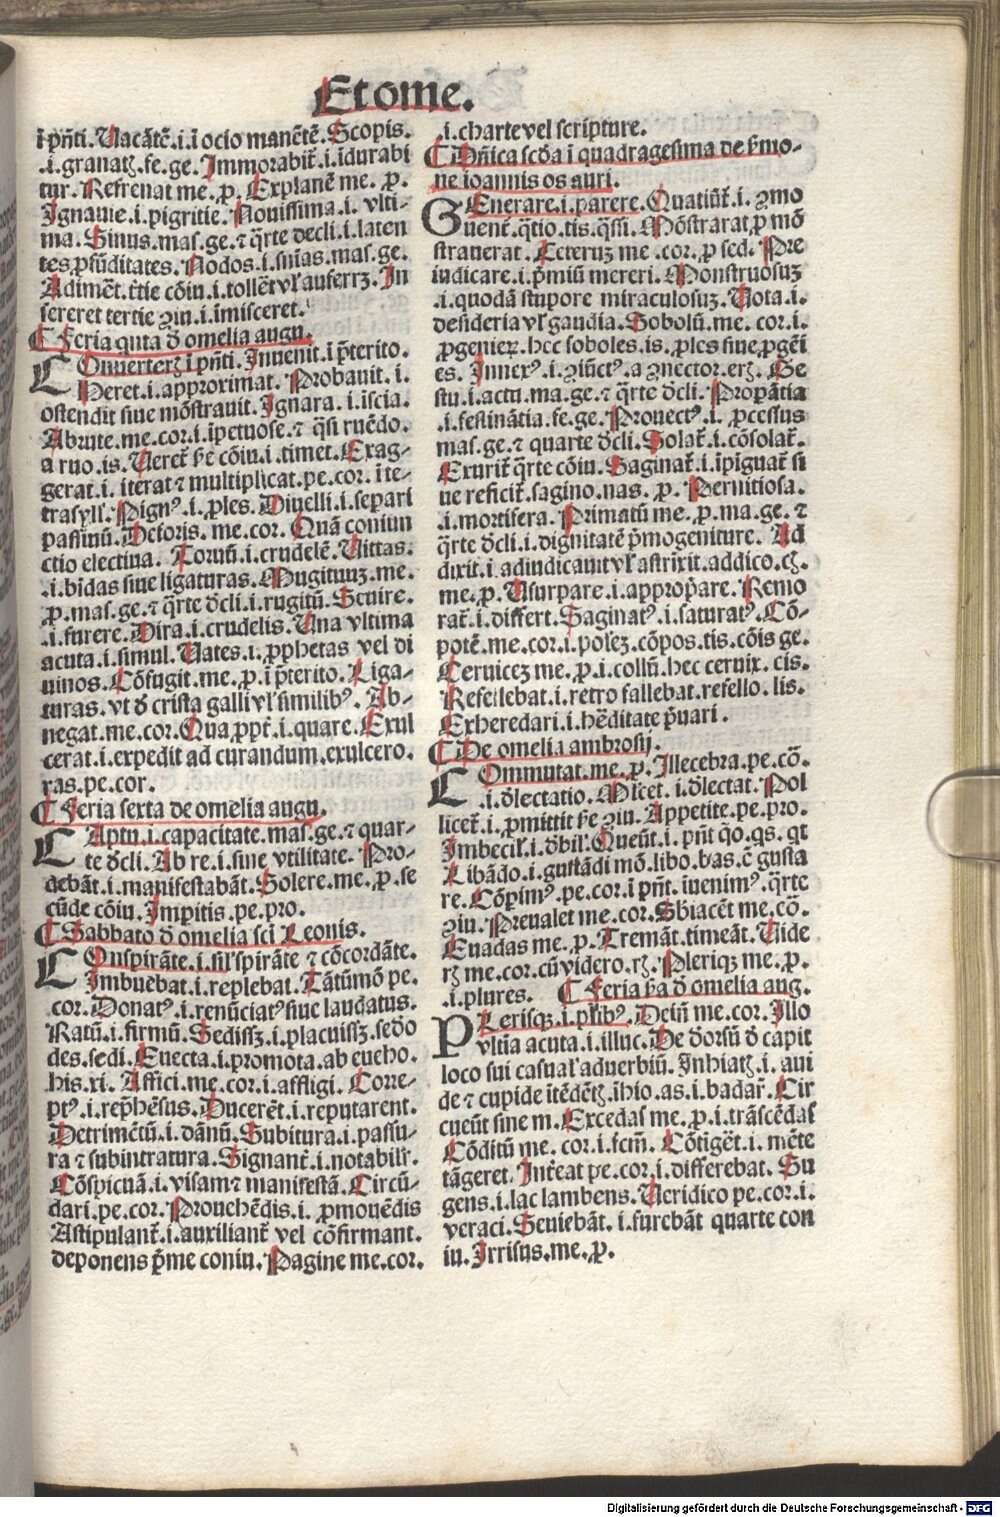 Et ome.
ī pn̄ti. Uacātē.i. ī ocio manētē. Scopis.
.i. granatꝫ.fe.ge. Immorabir̄.i. īdurabi
tur. Refrenat me. ꝓ. Explanē me. ꝓ.
Ignauie.i. pigritie. Nouissima.i. vlti-
ma. Sinus.mas.ge.⁊ q̄rte decli.i. laten
tes ꝓfūditates. Nodos.i. sn̄ias mas.ge.
Adimēt. t̄tie cōiu.i. tollēt vl' auferrꝫ. In
sereret tertie ꝯiu.i. imisceret.
Feria qu̅ta d̄ omelia augu.
COnuerterꝫ ī pn̄ti. Inuenit.i p̄terito.
Heret.i. approximat. Probauit.i.
ostendit siue mōstrauit. Ignara.i. īscia.
Abrute.me.cor.i. īpetuose.⁊ q̄si ruēdo.
a ruo.is. Ueret̄ s̄e cōiu.i. timet. Exag-
gerat.i. iterat ⁊ multiplicat.pe.cor.i te-
tra syll'. Pignꝰ.i. ꝓles. Diuelli.i. separi
passiuū. Detoris.me.cor. Quā coniun
ctio electiua. Toruū.i. crudelē. Uittas.
.i. bīdas siue ligaturas. Mugituuꝫ.me.
ꝓ.mas.ge.⁊ q̄rte d̄cli.i. rugitū. Seuire.
.i. furere. Dira.i. crudelis. Una vltima
acuta.i. simul. Uates.i. ꝓphetas vel di
uinos. Cōfugit.me.ꝓ.i p̄terito. Liga-
turas. vt d̄ crista galli vl' similibꝰ. Ab-
negat.me.cor. Qua ꝓpt̄.i. quare. Exul
cerat.i. expedit ad curandum.exulcero.
ras.pe.cor.
Feria sexta de omelia augu.
CAptu.i. capacitate.mas.ge.⁊ quar-
te d̄cli. Ab re.i. sine vtilitate. Pro-
debāt.i. manifestabāt. Solere.me.ꝓ.se
cūde cōiu. Impitis.pe.pro.
Sabbato d̄ omelia sc̄i Leonis.
COnspirāte.i. sil' spirāte ⁊ cōcordāte.
Imbuebat.i. replebat. Tātūmō pe.
cor. Donatꝰ.i. renūciatꝰ siue laudatus.
Ratū.i. firmū. Sedissꝫ.i. placuissꝫ.sedo
des.sedi. Euecta.i. promota.ab eueho.
his.xi. Affici.me.cor.i. affligi. Corre-
ptꝰ.i. rep̄hēsus. Ducerēt.i. reputarent.
Detrimētū.i. dānū. Subitura.i. passu-
ra ⁊ subintratura. Signant̄.i. notabilr̄.
Cōspicuā.i. visam ⁊ manifestā. Circū-
dari.pe.cor. Prouehēdis.i. ꝓmouēdis
Astipulant̄.i. auxiliant̄ vel cōfirmant.
deponens p̄me coniu. Pagine me.cor.
.i. charte vel scripture.
Dn̄ica scd̄a ī quadragesima de s̄mo-
ne ioannis os auri.
GEnerare.i. parere. Quatiūt̄.i. ꝯmo
uent̄. q̄tio.tis.q̄ssi. Mōstrarat ꝓ mō
strauerat. Eeteruꝫ me .cor. ꝓ sed. Pre
iudicare.i. p̄miū mereri. Monstruosuꝫ
.i. quodā stupore miraculosuꝫ. Uota.i.
desideria vl' gaudia. Sobolū.me. cor.i.
ꝓgenieꝝ. hec soboles.is. ꝓles siue ꝓgēi
es. Innexꝰ.i. ꝯiūctꝰ.a ꝯnector.erꝫ. Ge
stu.i. actu.ma.ge.⁊ q̄rte d̄cli. Propātia
.i. festinātia.fe.ge. Prouectꝰ.i. ꝓcessus
mas.ge.⁊ quarte d̄cli. Solat̄.i. cōsolat̄.
Exurit̄ q̄rte cōiu. Saginat̄.i. īpīguat̄ si
ue reficit̄.sagino.nas. ꝓ. Pernitiosa.
.i. mortifera. Primatū me.ꝓ.ma.ge.⁊
q̄rte d̄cli.i. dignitatē p̄mogeniture. Ad
dixit.i. adiudicauit vl' astrixit.addico.cꝫ.
me.ꝓ. Usurpare.i. approp̄are. Remo
rat̄.i. differt. Saginatꝰ.i. saturatꝰ. Cō-
potē.me.cor.i. potēꝫ.cōpos.tis.cōis ge.
Ceruiceꝫ me.ꝓ.i. collū.hec ceruix. cis.
Refellebat.i. retro fallebat.refello. lis.
Exheredari.i. hēditate p̄uari.
De omelia ambrosij.
COmmutat.me.ꝓ. Illecebra.pe.cō.
.i. d̄lectatio. Mlcet̄.i. d̄lectat. Pol
licet̄.i. ꝓmittit s̄e ꝯiu. Appetite.pe.pro.
Imbecil'.i. d̄bil'. Queūt.i. pn̄t q̄o.qs. qt
Libādo.i. gustādi mō.libo.bas.ē gusta
re. Cōpimꝰ.pe.cor.i pn̄t.inenimꝰ.q̄rte
ꝯiu. Preualet me.cor. Sbiacēt me.cō.
Euadas me.ꝓ. Tremāt.timeāt. Uide
rꝫ me.cor.cū videro.rꝫ. Pleriqꝫ me.ꝓ.
.i. plures. Feria p̄a d̄ omelia aug.
PLerisqꝫ.i. pl'ibꝰ. Deiñ me.cor. Illo
vltīa acuta.i. illuc. De dorsū d̄ capit
loco sui casual' aduerbiū. Inhiatꝫ.i. aui
de ⁊ cupide ītēdētꝫ.īhio.as.i. badar̄. Cir
cueūt sine m. Excedas me.ꝓ.i. trāscēdas
Cōditū me. cor.i. fctm̄. Cōtigēt.i. mēte
tāgeret. Int̄eat pe.cor.i. differebat. Su
gens.i. lac lambens. Ueridico pe.cor.i.
veraci. Seuiebāt.i. furebāt quarte con
iu. Irrisus.me.ꝓ.
Digitalisierung gefördert durch die Deutsche Forschungsgemeinschaft - DFG